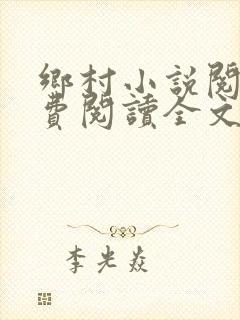 鄉村小說閱
費閱讀全文
李光焱